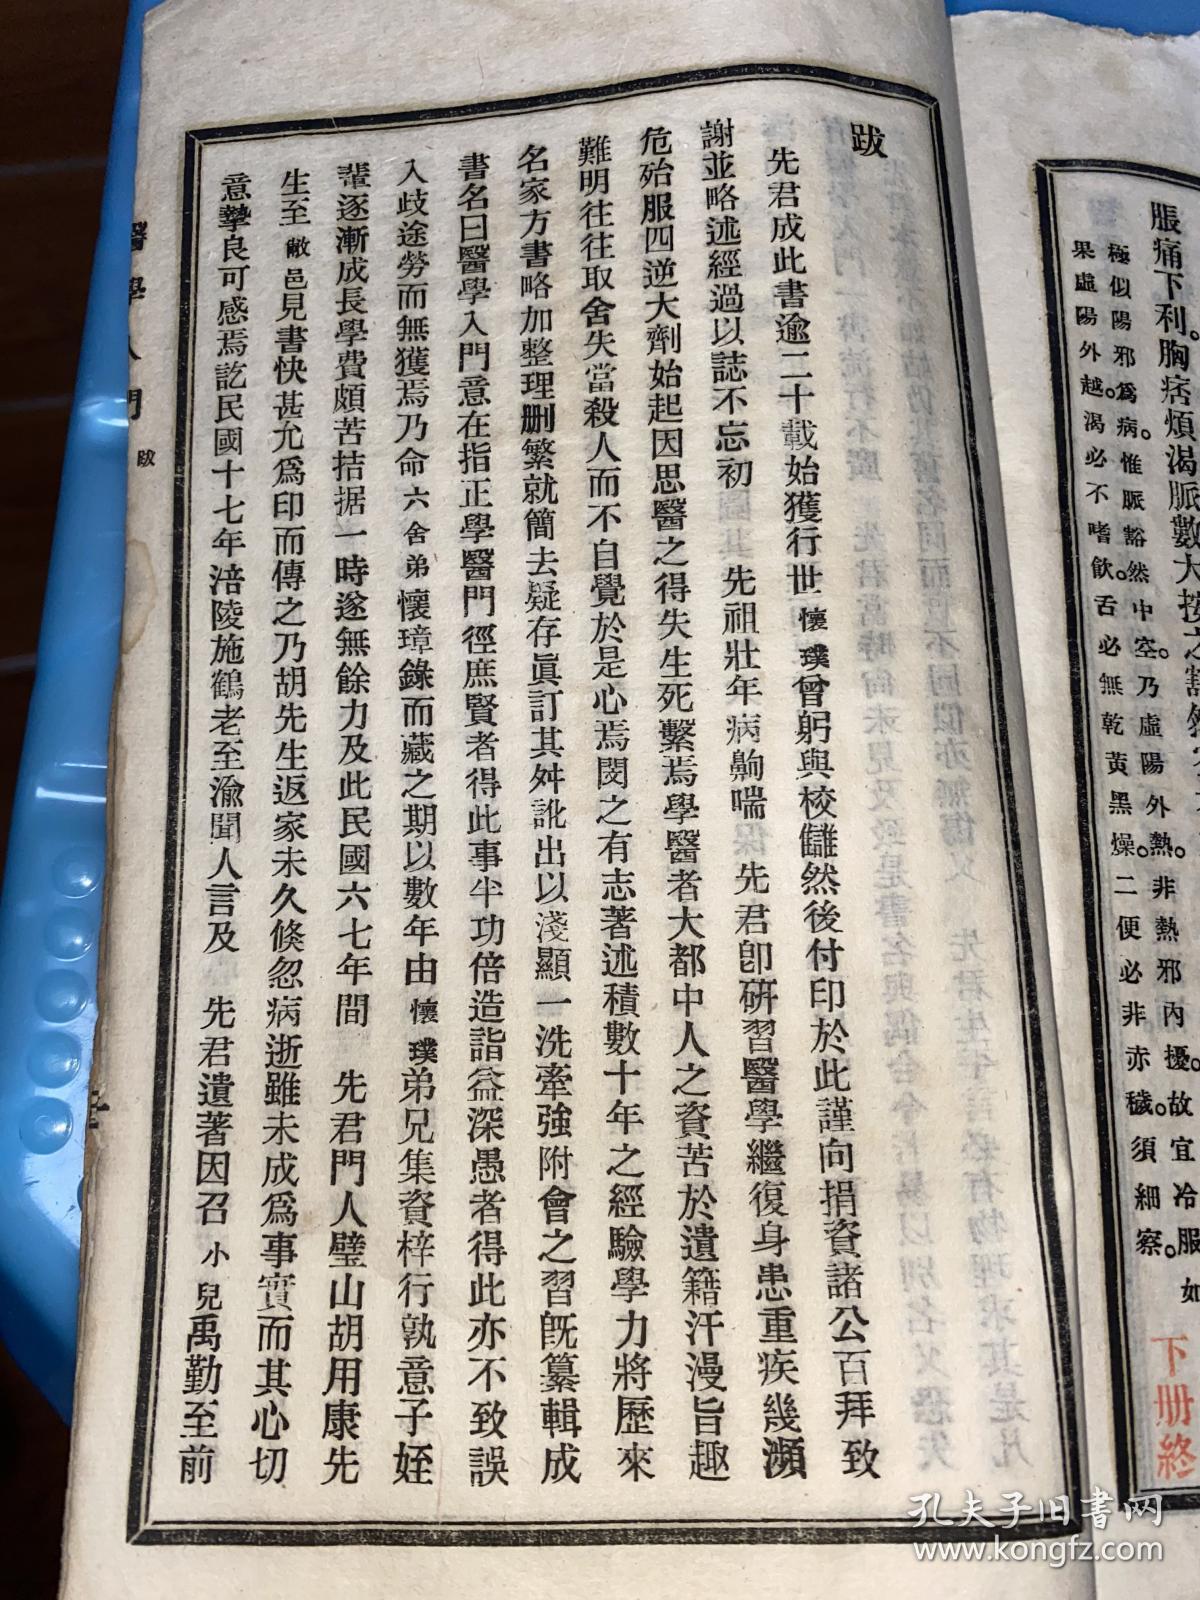 脹痛下利。胸痞煩渴脈數大按之豁然
極似陽邪爲病。惟脈豁然中空。乃虛陽外熱。非熱邪內擾。故宜冷服
果虛陽外越。渴必不嗜飲。舌必無乾黃黑燥。二便必非赤穢。須細察。
如
下册終
跋
先君成此書逾二十載始獲行世懷璞曾躬與校讎然後付印於此謹向捐資諸公百拜致
謝並略述經過以誌不忘初　先祖壯年病齁喘　先君卽硏習醫學繼復身患重疾幾瀕
危殆服四逆大劑始起因思醫之得失生死繫焉學醫者大都中人之資苦於遺籍汗漫旨趣
難明往往取舍失當殺人而不自覺於是心焉閔之有志著述積數十年之經驗學力將歷來
名家方書略加整理刪繁就簡去疑存眞訂其舛訛出以淺顯一洗牽強附會之習旣纂輯成
書名曰醫學入門意在指正學醫門徑庶賢者得此事半功倍造詣益深愚者得此亦不致誤
入歧途勞而無獲焉乃命六舍弟懷璋錄而藏之期以數年由懷璞弟兄集資梓行孰意子姪
輩逐漸成長學費頗苦拮据一時遂無餘力及此民國六七年間　先君門人璧山胡用康先
生至敝邑見書快甚允爲印而傳之乃胡先生返家未久倏忽病逝雖未成爲事實而其心切
意摯良可感焉訖民國十七年涪陵施鶴老至渝聞人言及　先君遺著因召小兒禹勤至前
醫學入門
跋
孔夫子旧书网
www.kongfz.com